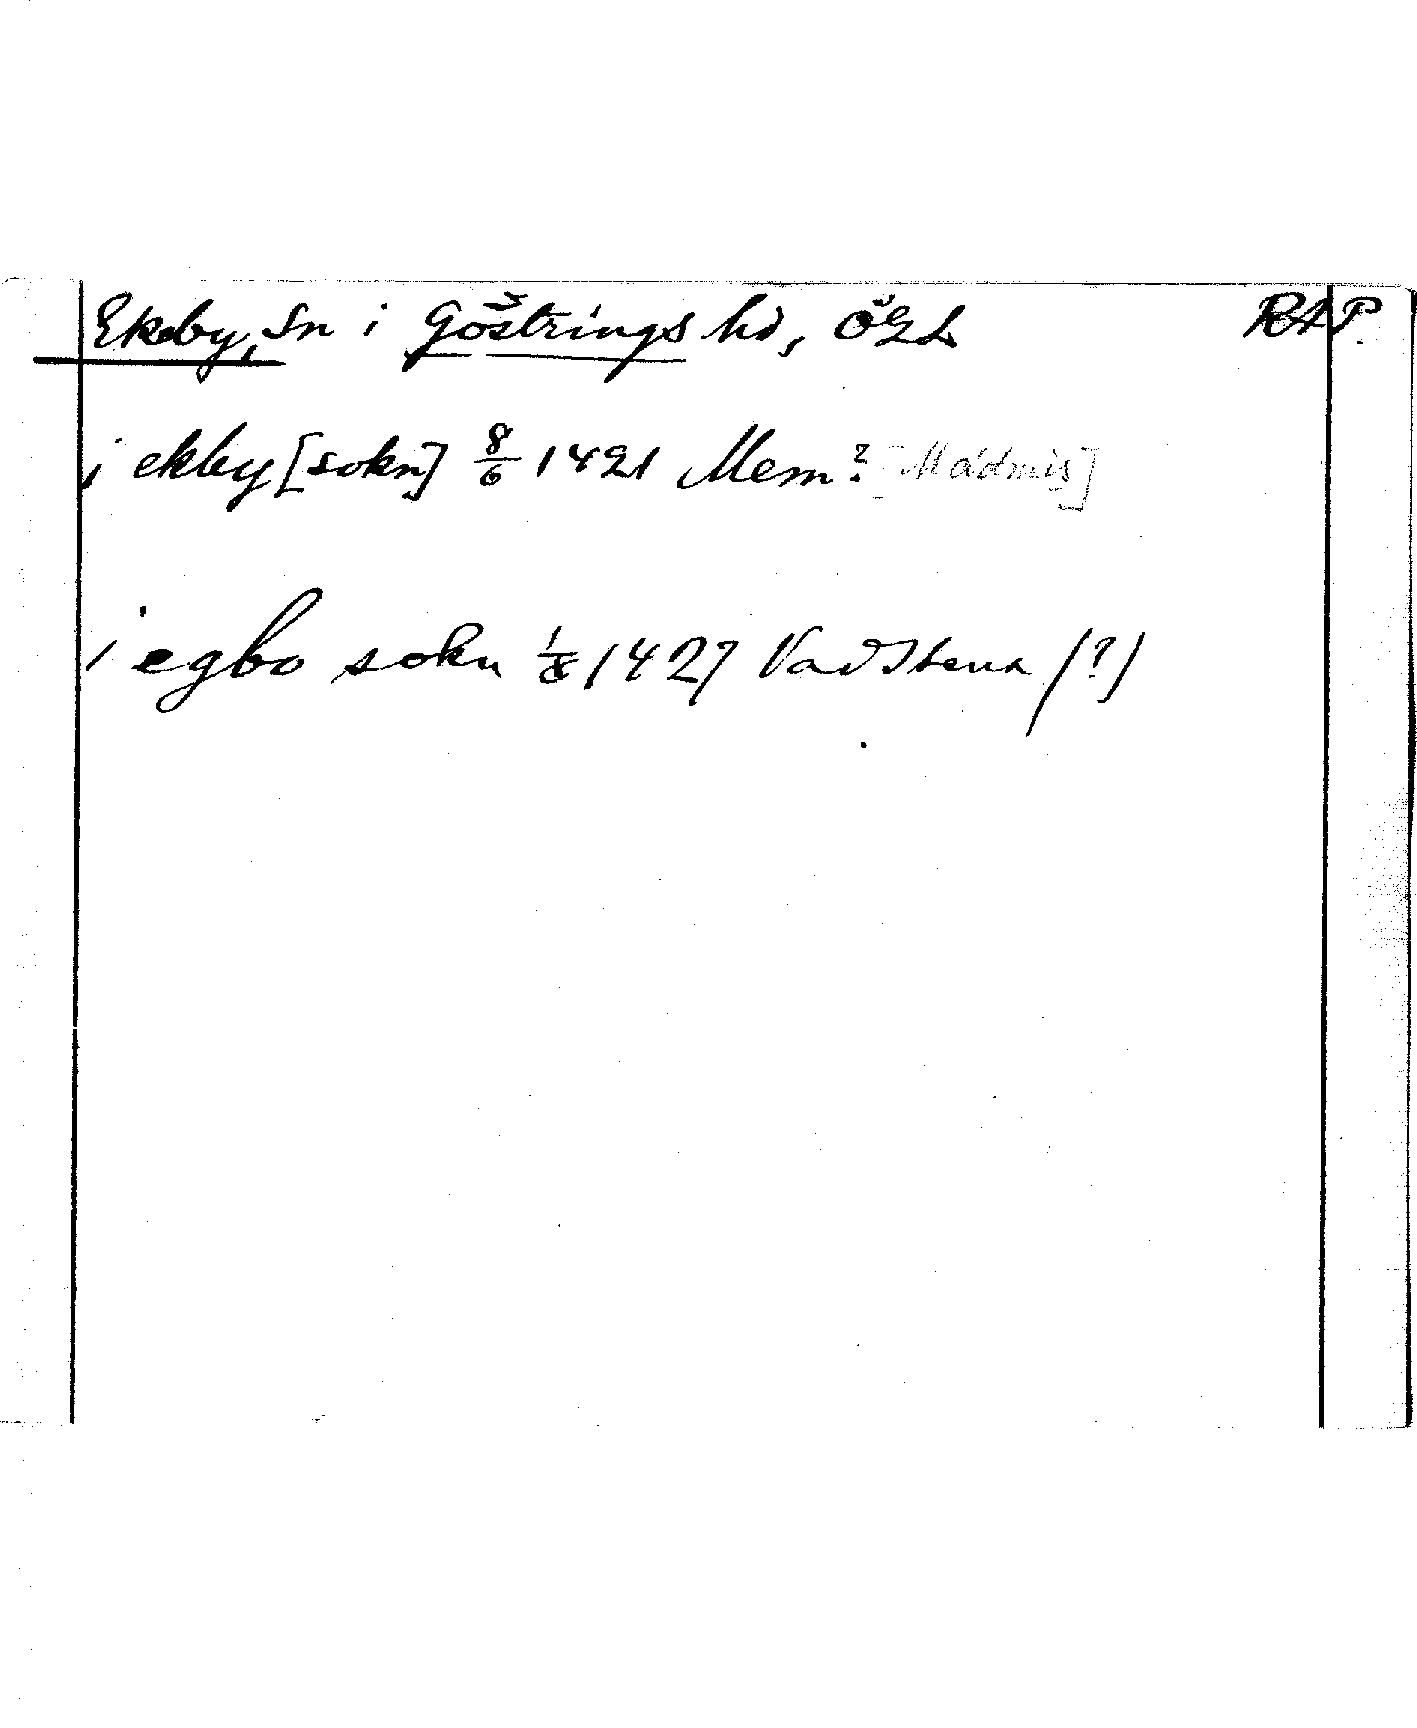 Ekeby, Sn i Göstrings hd, ÖGL RAP
i ekby [sokn] 8/6 1421 Mem? [Mädmis]
i egbo sokn 1/8 1427 Vadstena (?)